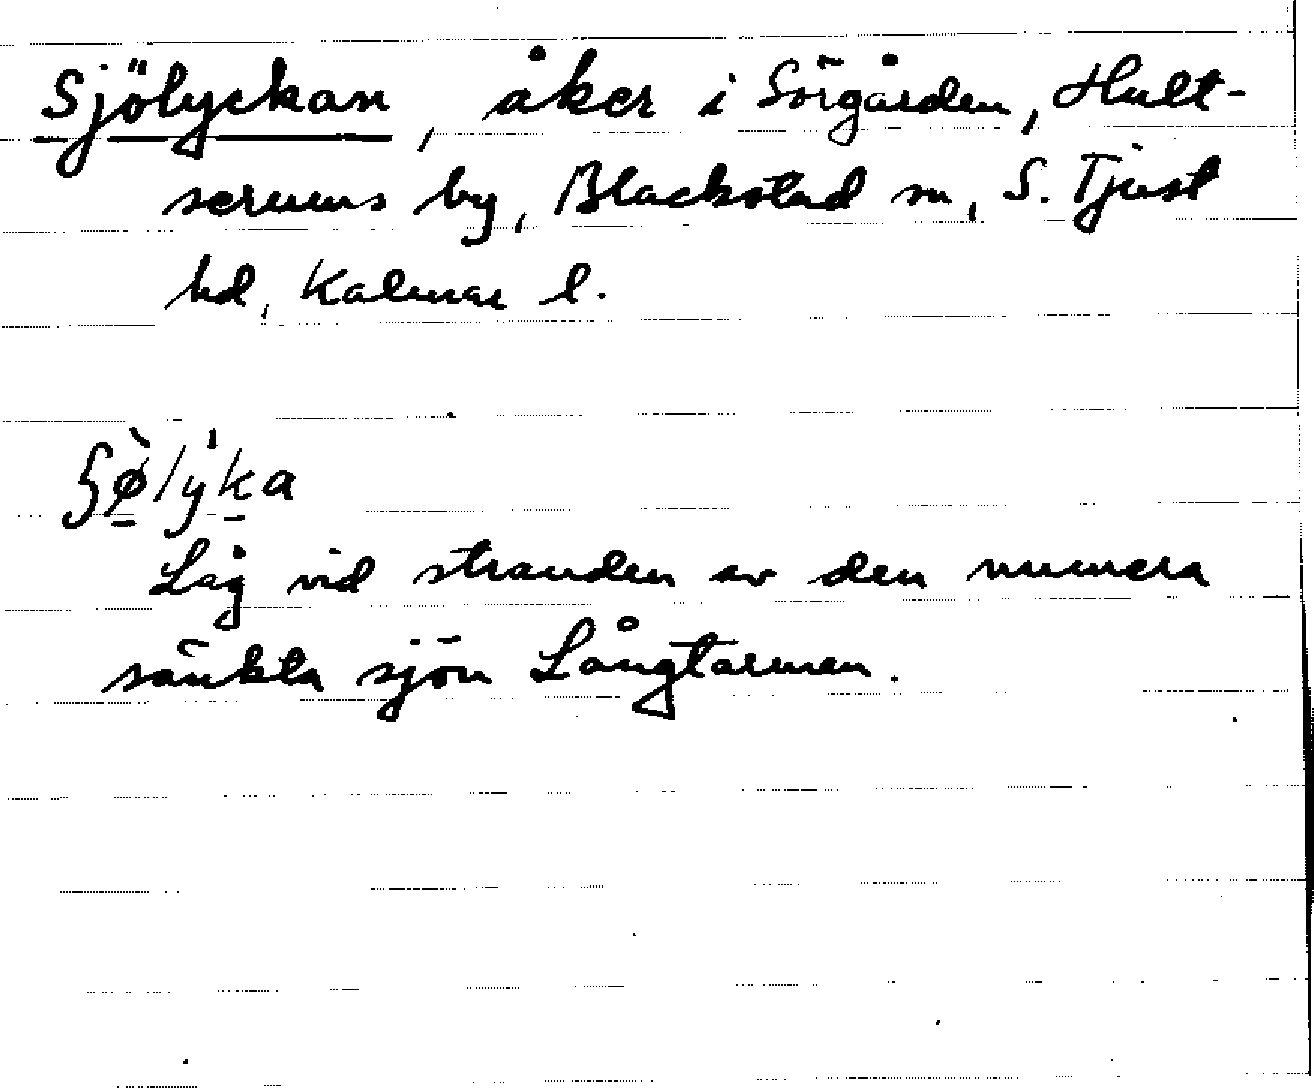 Sjölyckan, åker i Sörgården, Hult-
serums by, Blackstad sn, S. Tjust
hd, Kalmar l.
Låg vid stranden av den numera
sänkta sjön Långtarmen.